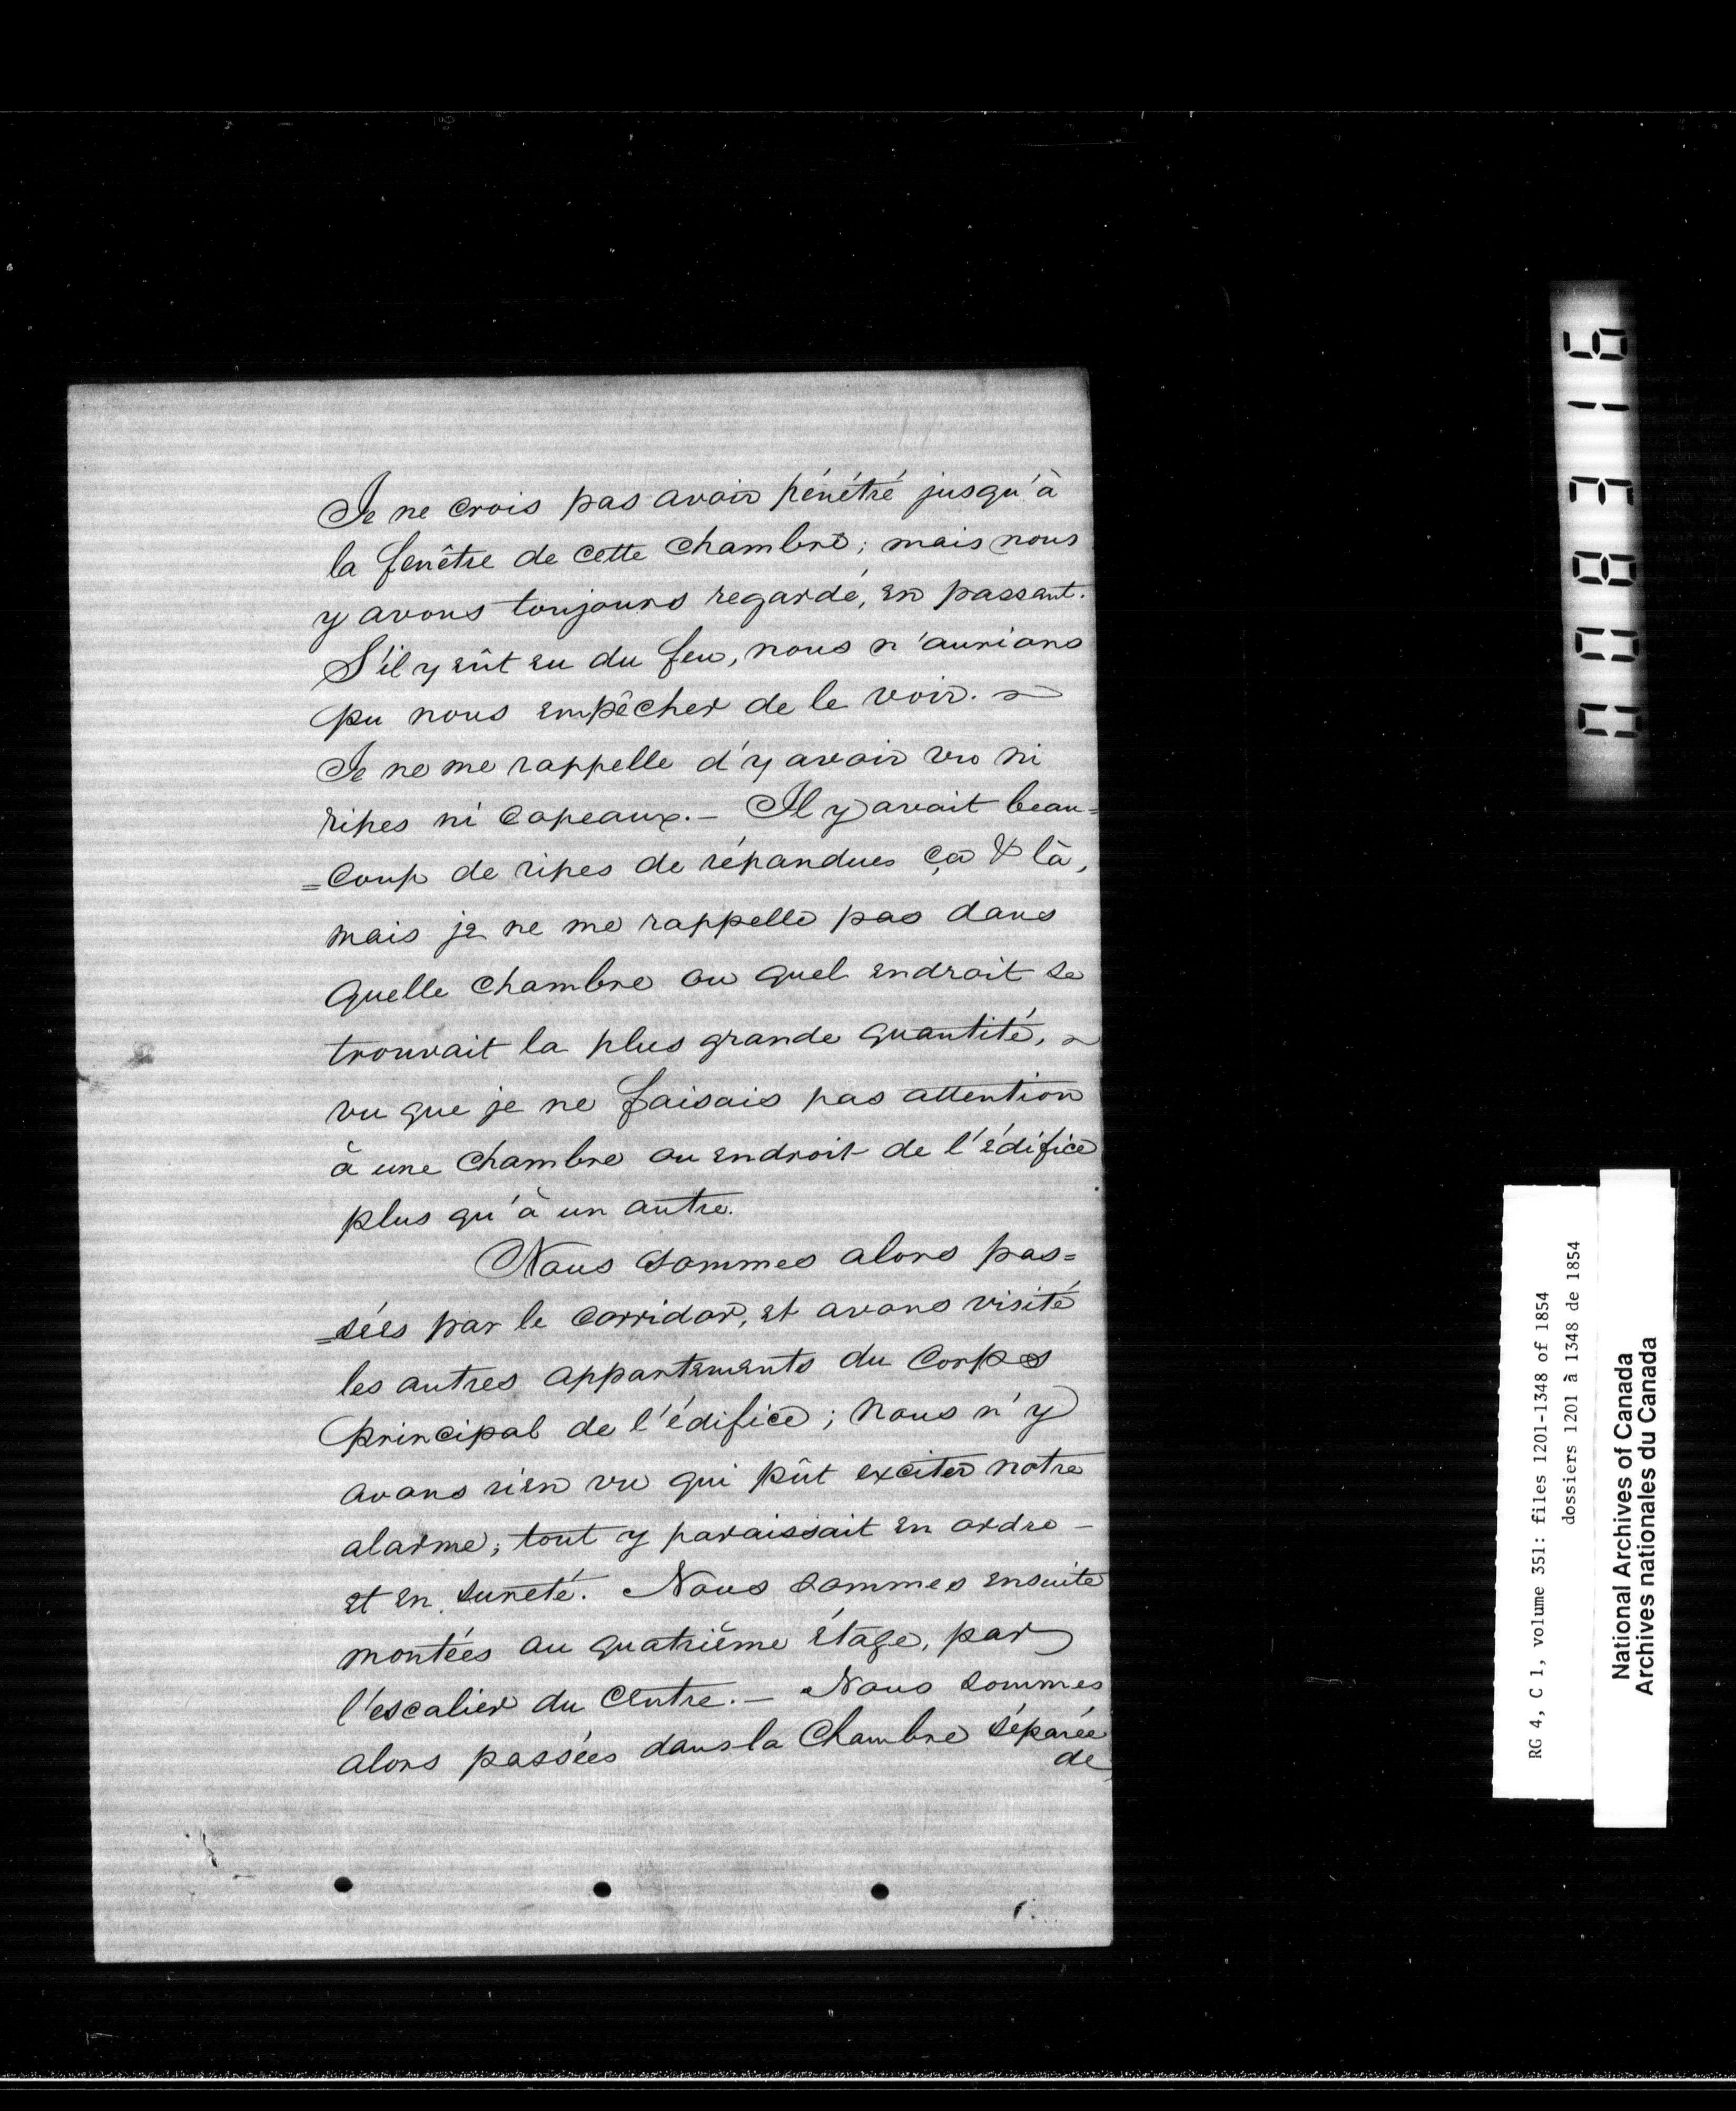 Je ne crois pas avoir pénétré jusqu'à
la fenêtre de cette chambre; mais nous
y avons toujours regardé, en passant.
S'il y eût eu du feu, nous n'aurions
pu nous empêcher de le voir. ~
Je ne me rappelle d'y avoir vu ni
ripes ni copeaux. — Il y avait beau=
=coup de ripes de répandues ça & là,
mais je ne me rappelle pas dans
quelle chambre ou quel endroit se
trouvait la plus grande quantité, ~
vu que je ne faisais pas attention
à une chambre ou endroit de l'édifice
plus qu'à un autre.
Nous sommes alors pas=
=sées par le corridor, et avons visité
les autres appartements du corps
principal de l'édifice; nous n'y
avons rien vu qui pût exciter notre
alarme; tout y paraissait en ordre —
et en sureté. Nous sommes ensuite
montées au quatrième étage, par
l'escalier du centre. — Nous sommes
alors passées dans la Chambre séparée
de
008316
RG 4, C 1, volume 351: files 1201-1348 of 1854
dossiers 1201 à 1348 de 1854
National Archives of Canada
Archives nationales du Canada